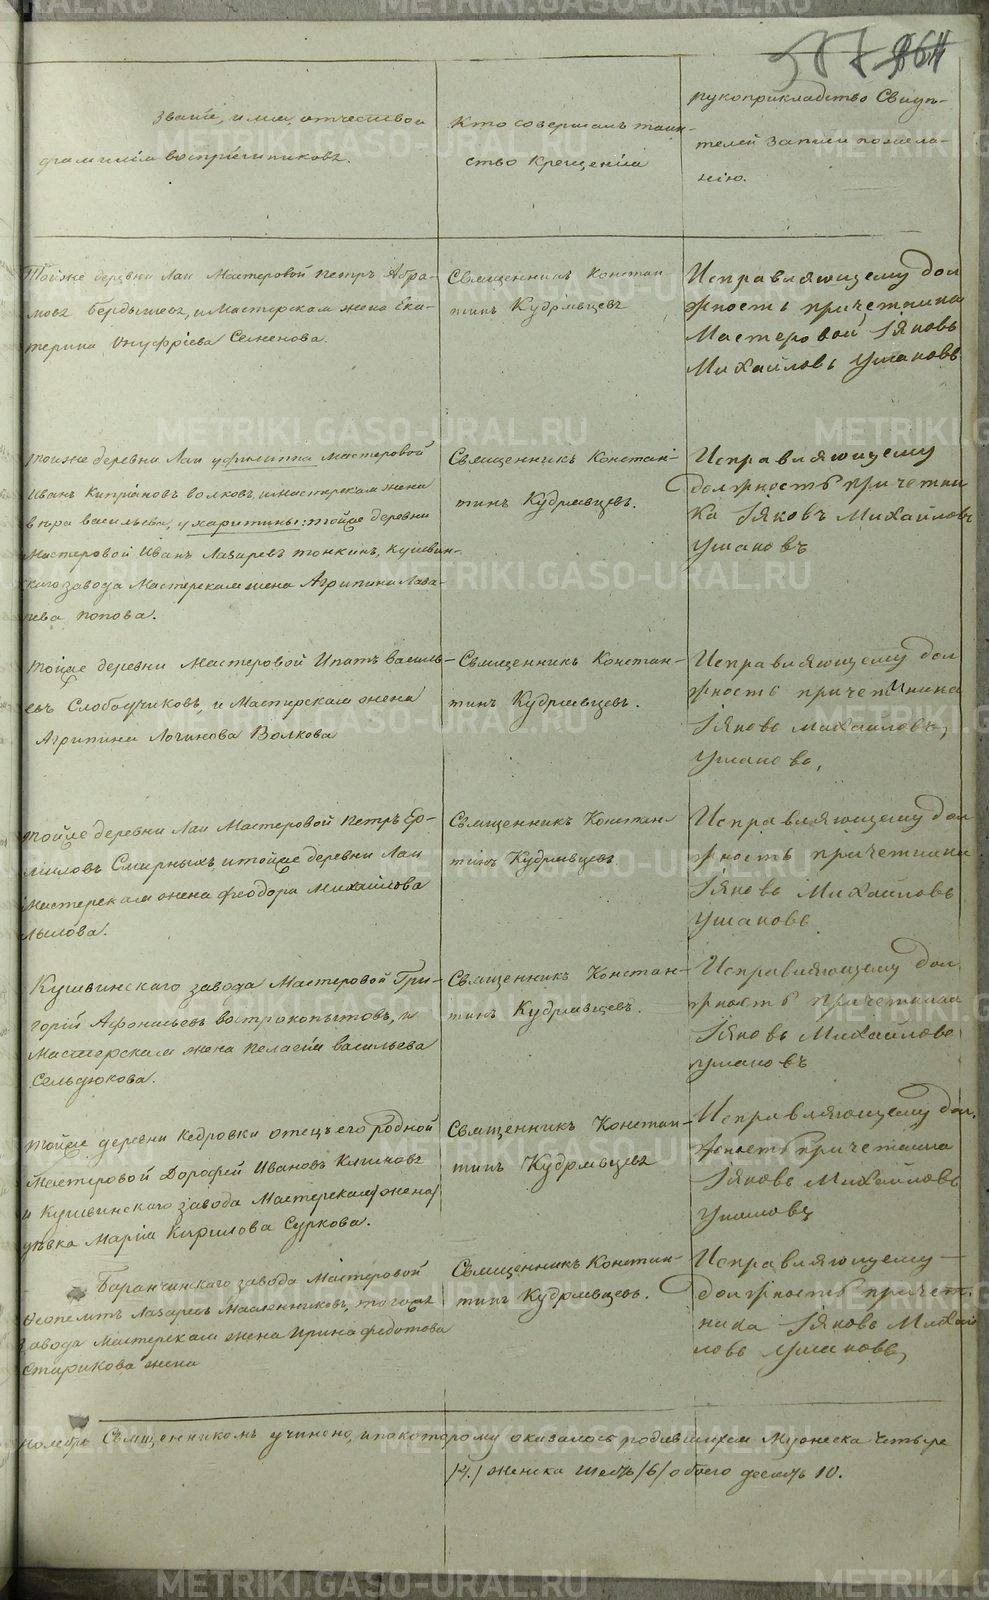 METRIKI.GASO-URAL.RU
званіе, имя, отчество и
фамилія воспріемниковъ.
Кто совершалъ таин-
ство крещенія
рукоприкладство Свидѣ-
телей записи по жела-
нію.
Тойже деревни Лаи Мастеровой Петръ Абра-
мовъ Бердышевъ, и Мастерская жена Ека-
терина Онуфріева Семенова.
Священникъ Констан
тинъ Кудрявцевъ
Исправляющему дол
жность причетника
Мастеровой Іяковъ
Михайловъ Ушаковъ
тойже деревни Лаи у филиппа Мастеровой
Иванъ Кипріановъ Волковъ, и мастерская жена
Вѣра Васильева, у харитины: тойже деревни
Мастеровой Иванъ Лазаревъ Тонкинъ, Кушвин-
скаго завода Мастерская жена Агрипина Лаза-
рева Попова.
Священникъ Констан-
тинъ Кудрявцевъ.
Исправляющему
должность причетни
ка Іяковъ Михайловъ
Ушаковъ
тойже деревни Мастеровой Ипатъ Василь-
евъ Слободчиковъ, и Мастерская жена
Агрипина Логинова Волкова
Священникъ Констан-
тинъ Кудрявцевъ.
Исправляющему дол
жность причетника
Іяковъ Михаиловъ,
Ушаковъ,
тойже деревни Лаи Мастеровой Петръ Ер-
миловъ Смирныхъ, и тойже деревни Лаи
Мастерская жена Феодора Михайлова
Лылова.
Священникъ Констан-
тинъ Кудрявцевъ.
Исправляющему дол
жность причетника
Іяковъ Михайловъ
Ушаковъ
Кушвинскаго завода Мастеровой Гри-
горій Афонасьевъ Вострокопытовъ, и
Мастерская жена Пелагія Васильева
Сельдюкова.
Священникъ Констан-
тинъ Кудрявцевъ.
Исправляющему дол
жность причетника
Іяковъ Михайловъ
Ушаковъ
тойже деревни Кедровки отецъ его родной
Мастеровой Дорофей Ивановъ
и Кушвинскаго завода Мастерская /жена/
дѣвка Марія Кирилова Суркова.
Священникъ Констан-
тинъ Кудрявцевъ
Исправляющему дол
жность причетника
Іяковъ Михайловъ
Ушаковъ
Баранчинскаго завода Мастеровой
Феопемптъ Лазаревъ Масленниковъ, тогоже
завода Мастерская жена Ирина Федотова
Старикова жена
Священникъ Констан-
тинъ Кудрявцевъ.
Исправляющему
должность причет-
ника Іяковъ Михай
ловъ Ушаковъ,
ноябрь Священникомъ учинено, и по которому оказалось родившихся Мужеска четыре
/4./ женска шесть /6/ обоего десять 10.